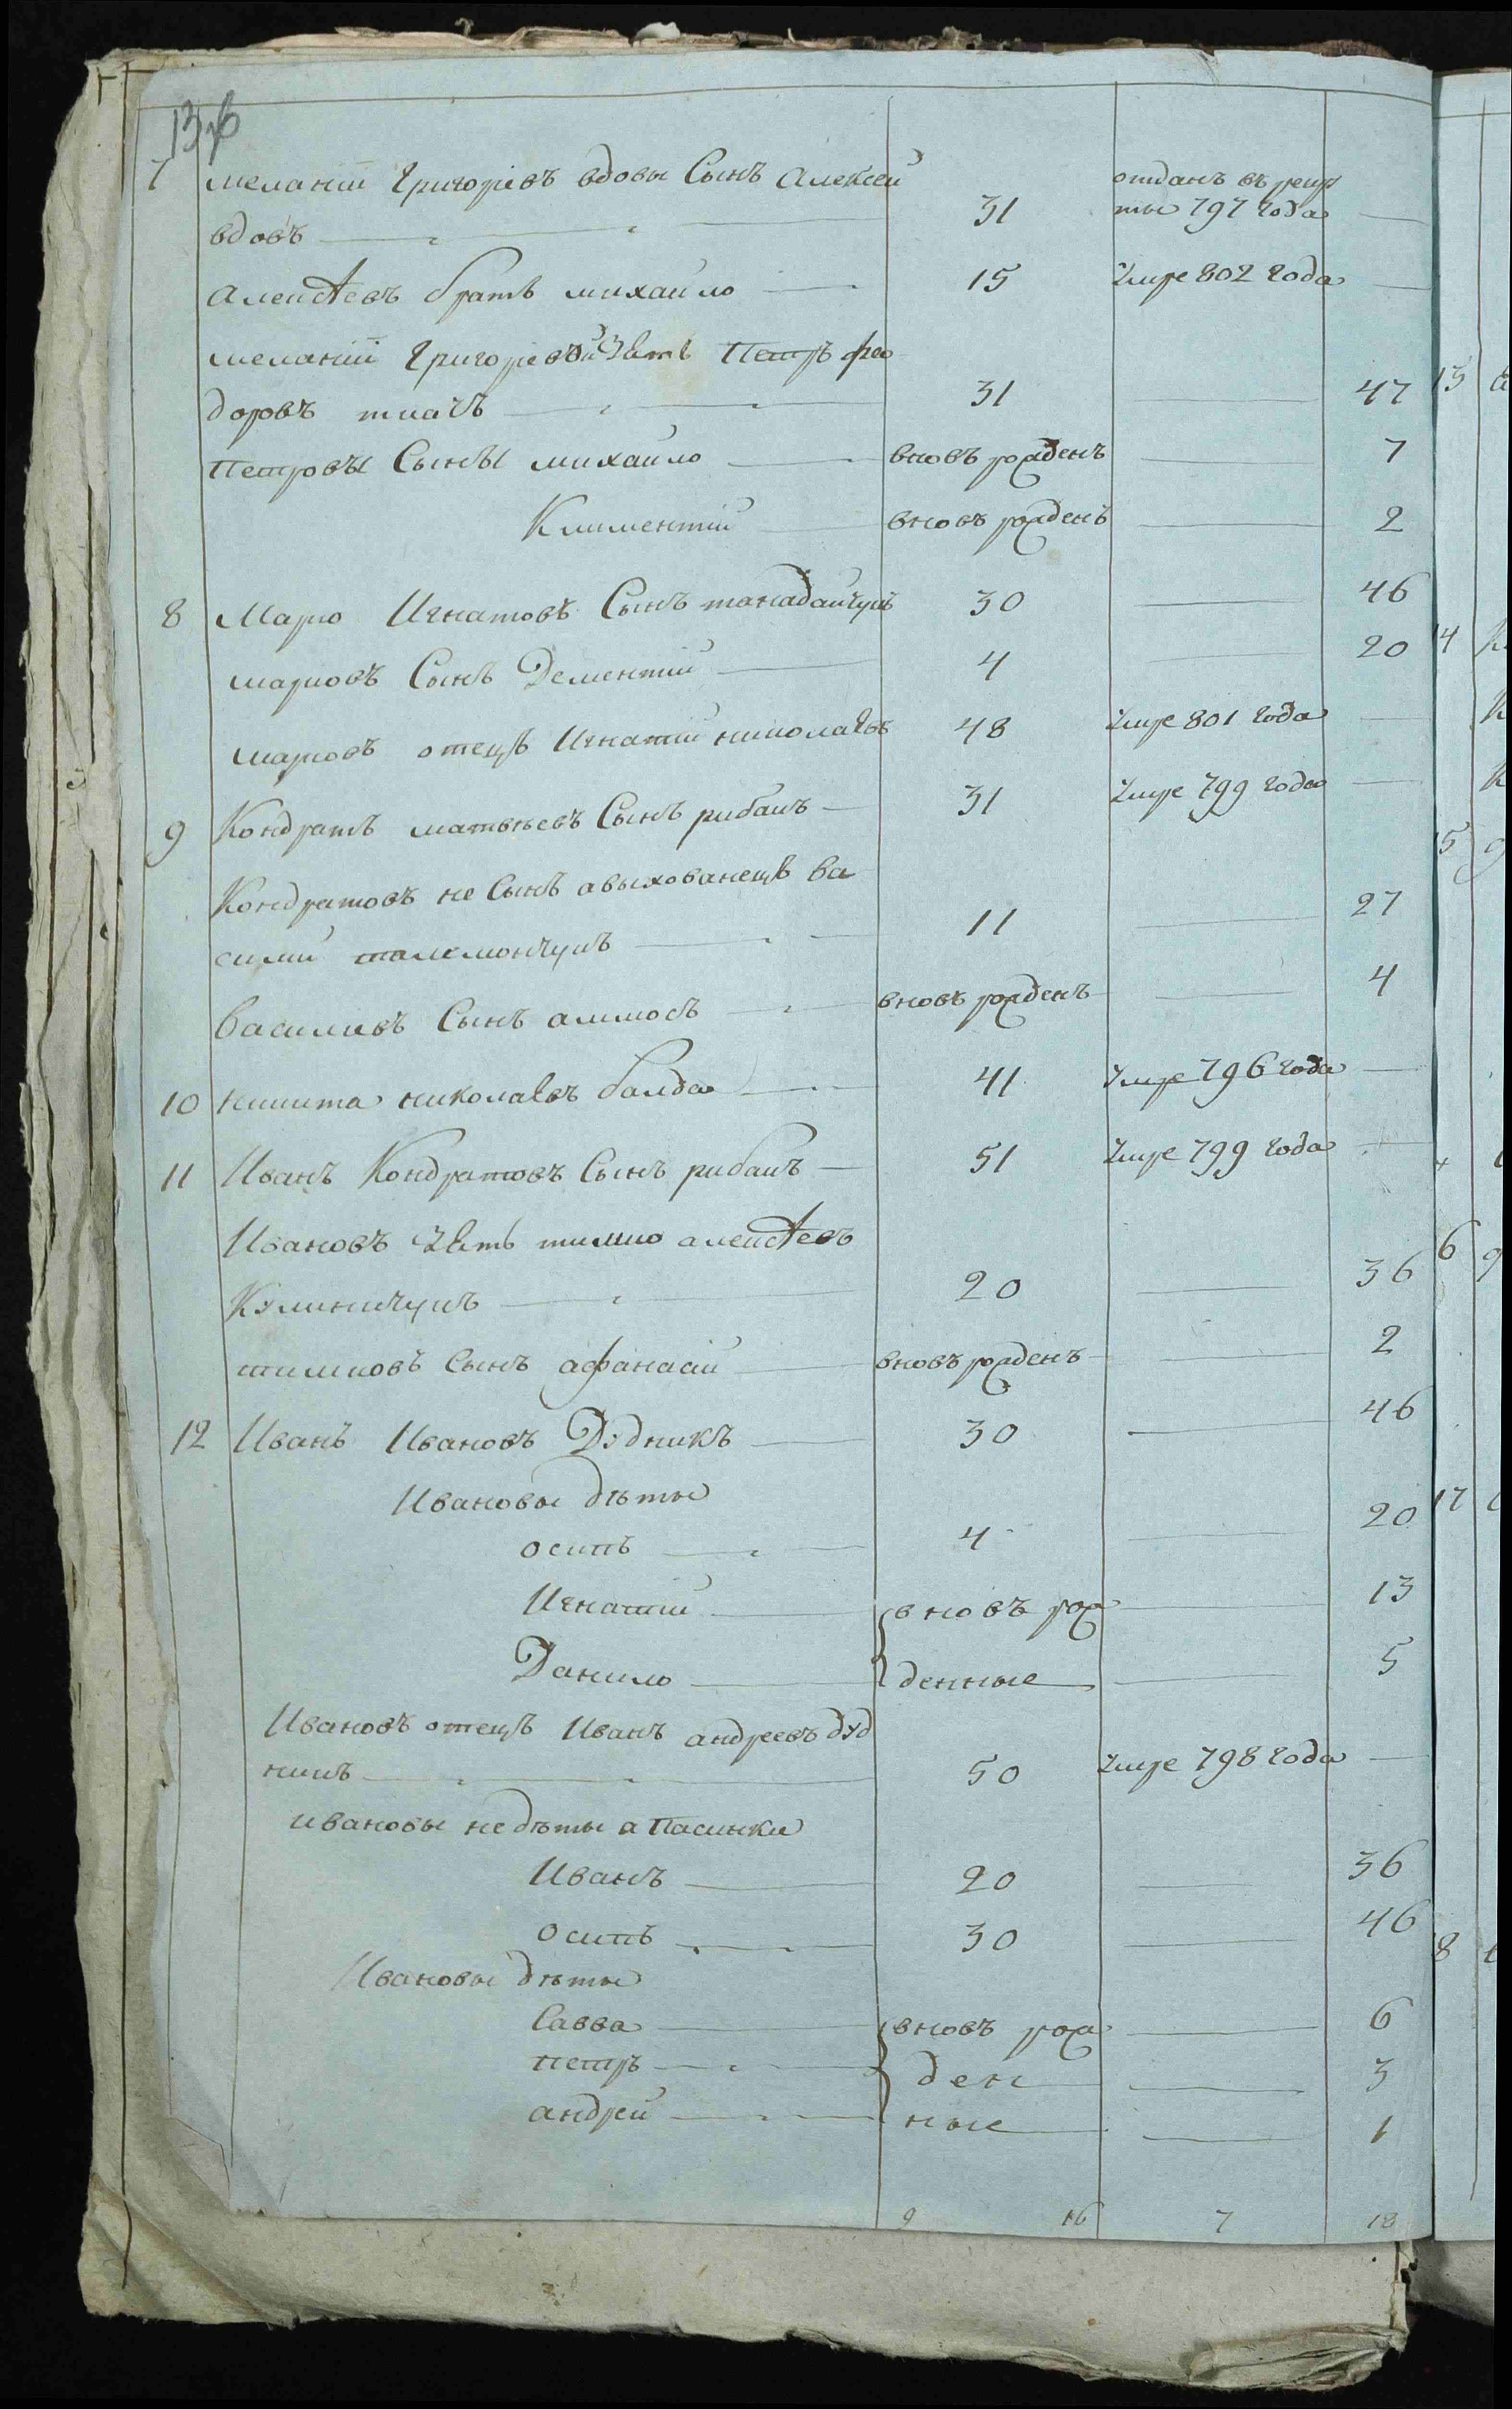 7 меланіи Григоріевъ вдовы Сынъ Алексей
вдовъ 31 отданъ въ рекру
ты 797 года
алексѣевъ братъ михайло 15 умре 802 года
меланіи Григоріевой зять Петръ фео
доровъ ткачъ 31 47
Петровы Сыны михайло вновъ рожденъ 7
Климентій вновъ рожденъ 2
8 Марко Игнатовъ Сынъ 30 46
марковъ Сынъ Дементій 4 20
марковъ отецъ Игнатій николаевъ 48 умре 801 года
9 Кондратъ матвѣевъ Сынъ рибакъ 31 умре 799 года
Кондратовъ не Сынъ а выхованецъ ва
силий 11 27
Василиевъ Сынъ аммосъ вновъ рожденъ 4
10 никита николаевъ балда 41 умре 796 года
11 Иванъ Кондратовъ Сынъ рибакъ 51 умре 799 года
Ивановъ зять тимко алексѣевъ
Кулиничукъ 20 36
тимковъ Сынъ афанасій вновъ рожденъ 2
12 Иванъ Ивановъ Дудникъ 30 46
Ивановы дѣты
осипъ 4 20
Игнатій вновъ рож 13
Данило денные 5
Ивановъ отецъ Иванъ андреевъ дуд
никъ 50 умре 798 года
ивановы не дѣты а Пасинки
Иванъ 20 36
осипъ 30 46
Ивановы дѣты
Савва вновъ рож 6
петръ ден 3
андрей ные 1
9 16 7 18